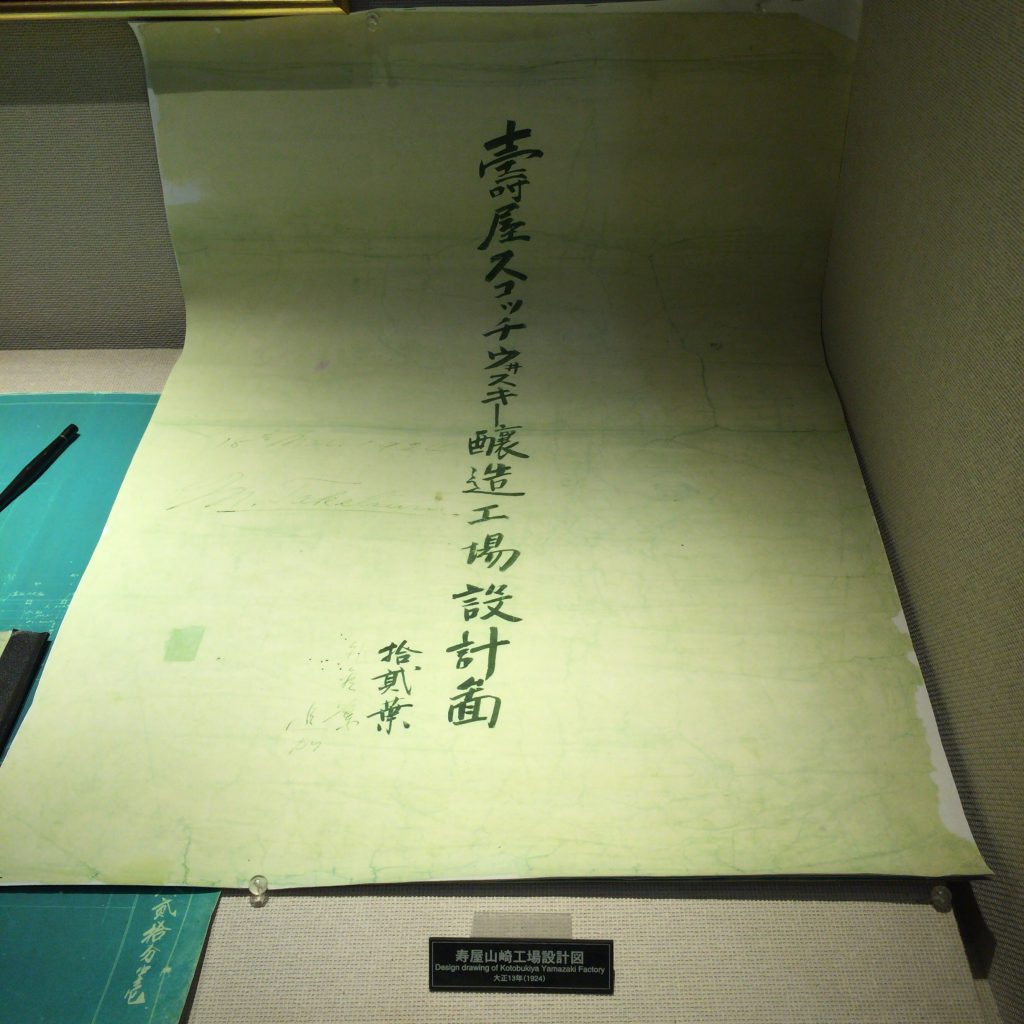 壽屋スコッチウ井スキー醸造工場設計圖
拾貳葉
貳拾分之壱
寿屋山崎工場設計図
Design drawing of Kotobukiya Yamazaki Factory
大正13年(1924)